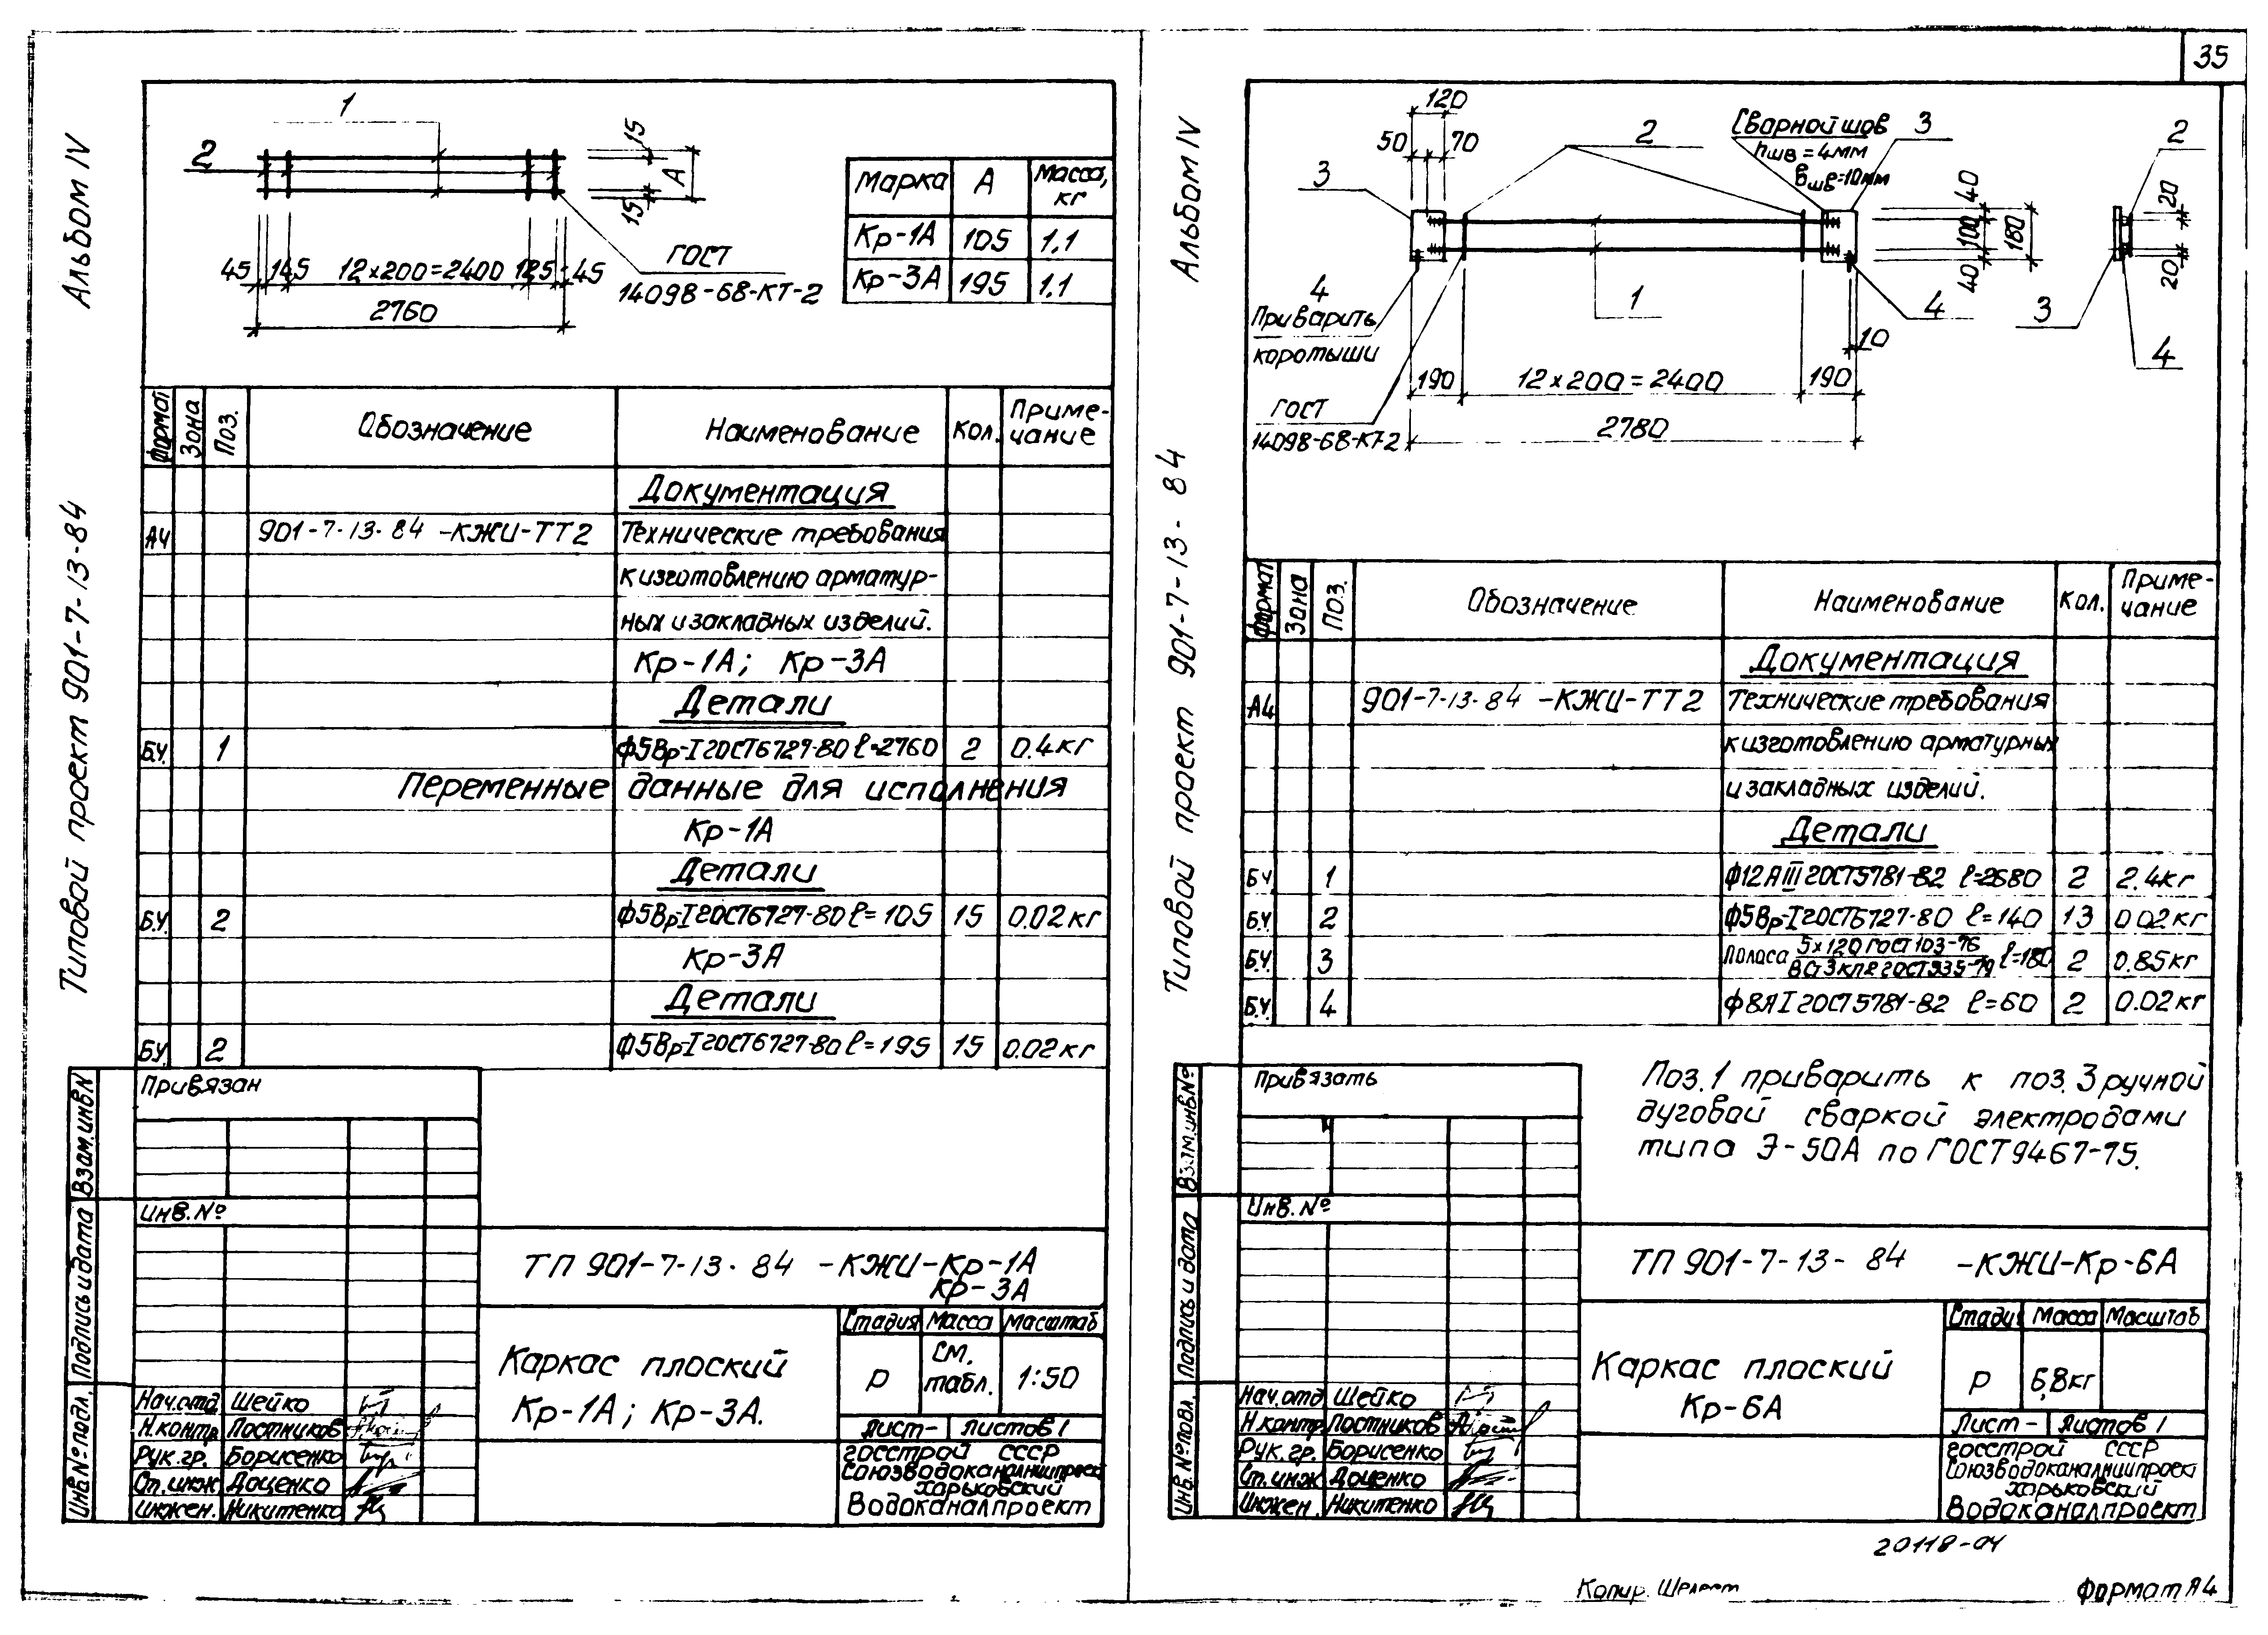 35
Альбом IV
Типовой проект 901-7-13-84
1
2
15
А
15
45 145 12×200=2400 125 45
2760
ГОСТ
14098-68-КТ-2
Марка А Масса, кг
Кр-1А 105 1.1
Кр-3А 195 1.1
Формат Зона Поз. Обозначение Наименование Кол. Приме-
чание
Документация
А4 901-7-13-84 -КЖИ-ТТ2 Технические требования
к изготовлению арматур-
ных и закладных изделий.
Кр-1А; Кр-3А
Детали
БЧ. 1 ф5Вр-I ГОСТ6727-80 ℓ=2760 2 0.4кг
Переменные данные для исполнения
Кр-1А
Детали
БЧ. 2 ф5Вр-I ГОСТ6727-80 ℓ=105 15 0.02кг
Кр-3А
Детали
БЧ. 2 ф5Вр-I ГОСТ6727-80 ℓ=195 15 0.02кг
Привязан
Инв.№
Взам.инв.N
Подпись и дата
Инв.№подл.
ТП 901-7-13-84 -КЖИ-Кр-1А
Кр-3А
Каркас плоский
Кр-1А; Кр-3А.
Стадия Масса Масштаб
Р см. табл. 1:50
Лист- Листов 1
Нач.отд Шейко
Н.контр. Постников
Рук.гр. Борисенко
Ст.инж Доценко
Инжен. Никитенко
Госстрой СССР
Союзводоканалниипроект
Харьковский
Водоканалпроект
Альбом IV
Типовой проект 901-7-13-84
120
50 70
2
Сварной шов
hшв=4мм
bшв=10мм
3
2
3
40
100
40
180
20
20
3
4
4
Приварить
коротыши
1
4
10
190 12×200=2400 190
2780
ГОСТ
14098-68-КТ-2
Формат Зона Поз. Обозначение Наименование Кол. Приме-
чание
Документация
А4 901-7-13-84 -КЖИ-ТТ2 Технические требования
к изготовлению арматурных
и закладных изделий.
Детали
БЧ 1 ф12АIII ГОСТ5781-82 ℓ=2680 2 2.4кг
Б.Ч. 2 ф5Вр-I ГОСТ6727-80 ℓ=140 13 0.02кг
Б.Ч. 3 Полоса 5×120 ГОСТ103-76 / ВСт3кп2 ГОСТ535-79 ℓ=180 2 0.85кг
Б.Ч. 4 ф8АI ГОСТ5781-82 ℓ=60 2 0.02кг
Поз.1 приварить к поз.3 ручной
дуговой сваркой электродами
типа Э-50А по ГОСТ9467-75.
Привязать
Инв.№
Взам.инв№
Подпись и дата
Инв.№подл.
ТП 901-7-13-84 -КЖИ-Кр-6А
Каркас плоский
Кр-6А
Стадия Масса Масштаб
Р 6,8кг
Лист - Листов 1
Нач.отд Шейко
Н.контр Постников
Рук.гр. Борисенко
Ст.инж Доценко
Инжен. Никитенко
Госстрой СССР
Союзводоканалниипроект
Харьковский
Водоканалпроект
20118-04
Копир. Шелест
Формат А4